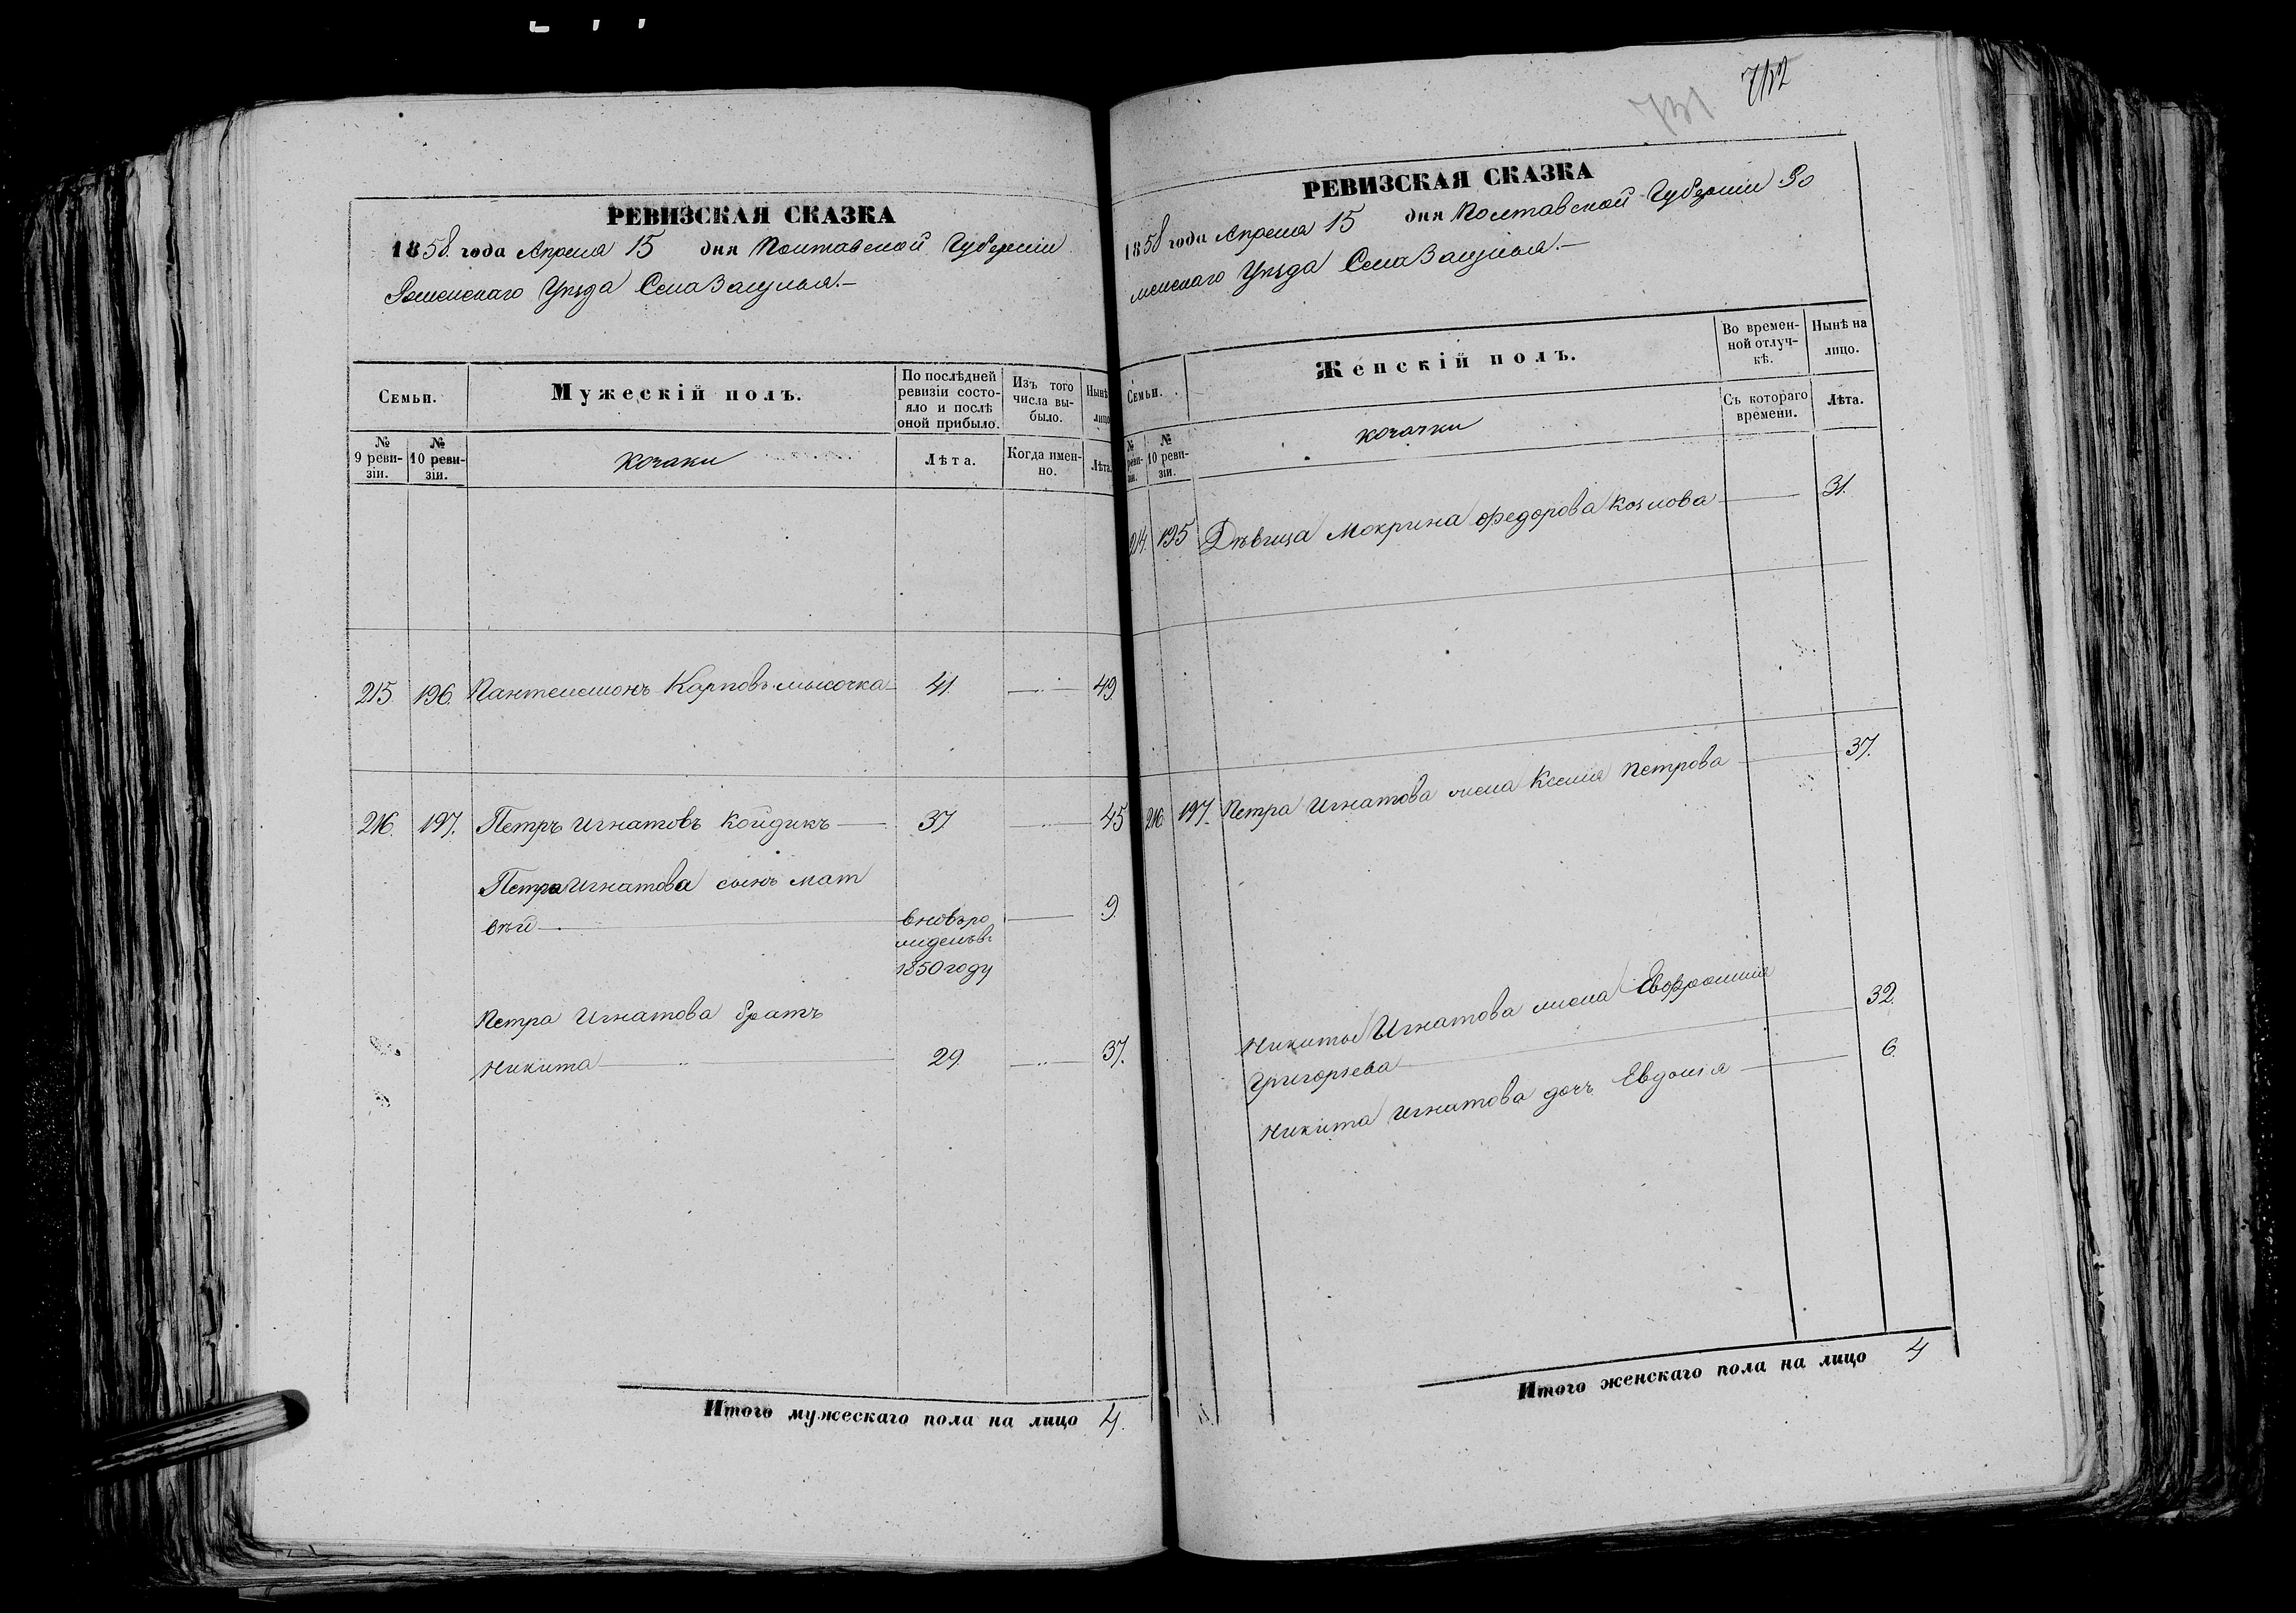 РЕВИЗСКАЯ СКАЗКА
1858 года Апреля 15 дня Полтавской Губернии
Роменскаго Уѣзда Села Засулья.—
Семьи.
Мужескій полъ.
По послѣдней ревизіи состояло и послѣ оной прибыло.
Изъ того числа выбыло.
Нынѣ
лицо
№ 9 ревизіи.
№ 10 ревизіи.
Козаки
Лѣта.
Когда именно.
Лѣта.
215. 196. Пантелемонъ Карповъ 41. 49.
216. 197. Петръ Игнатовъ Койдикъ 37 45
Петра Игнатова сынъ Мат
вѣй 9.
вновь ро
жденъ в
1850 году
Петра Игнатова братъ
Никита 29. 37.
Итого мужескаго пола на лицо 4.
712
731
РЕВИЗСКАЯ СКАЗКА
1858 года Апреля 15 дня Полтавской Губернии Ро
менскаго Уѣзда Села Засулья.—
Семьи.
Женскій полъ.
Во временной отлучкѣ.
Нынѣ на лицо.
№ реви- зіи.
№ 10 ревизіи.
Козачки
Съ котораго времени.
Лѣта.
214. 195 Дѣвица Мокрина Федорова Козлова 31.
216 197. Петра Игнатова жена Ксения Петрова 37.
Никиты Игнатова жена Евфросиния
Григорьева 32.
Никита Игнатова дочь Евдокия 6.
Итого женскаго пола на лицо 4